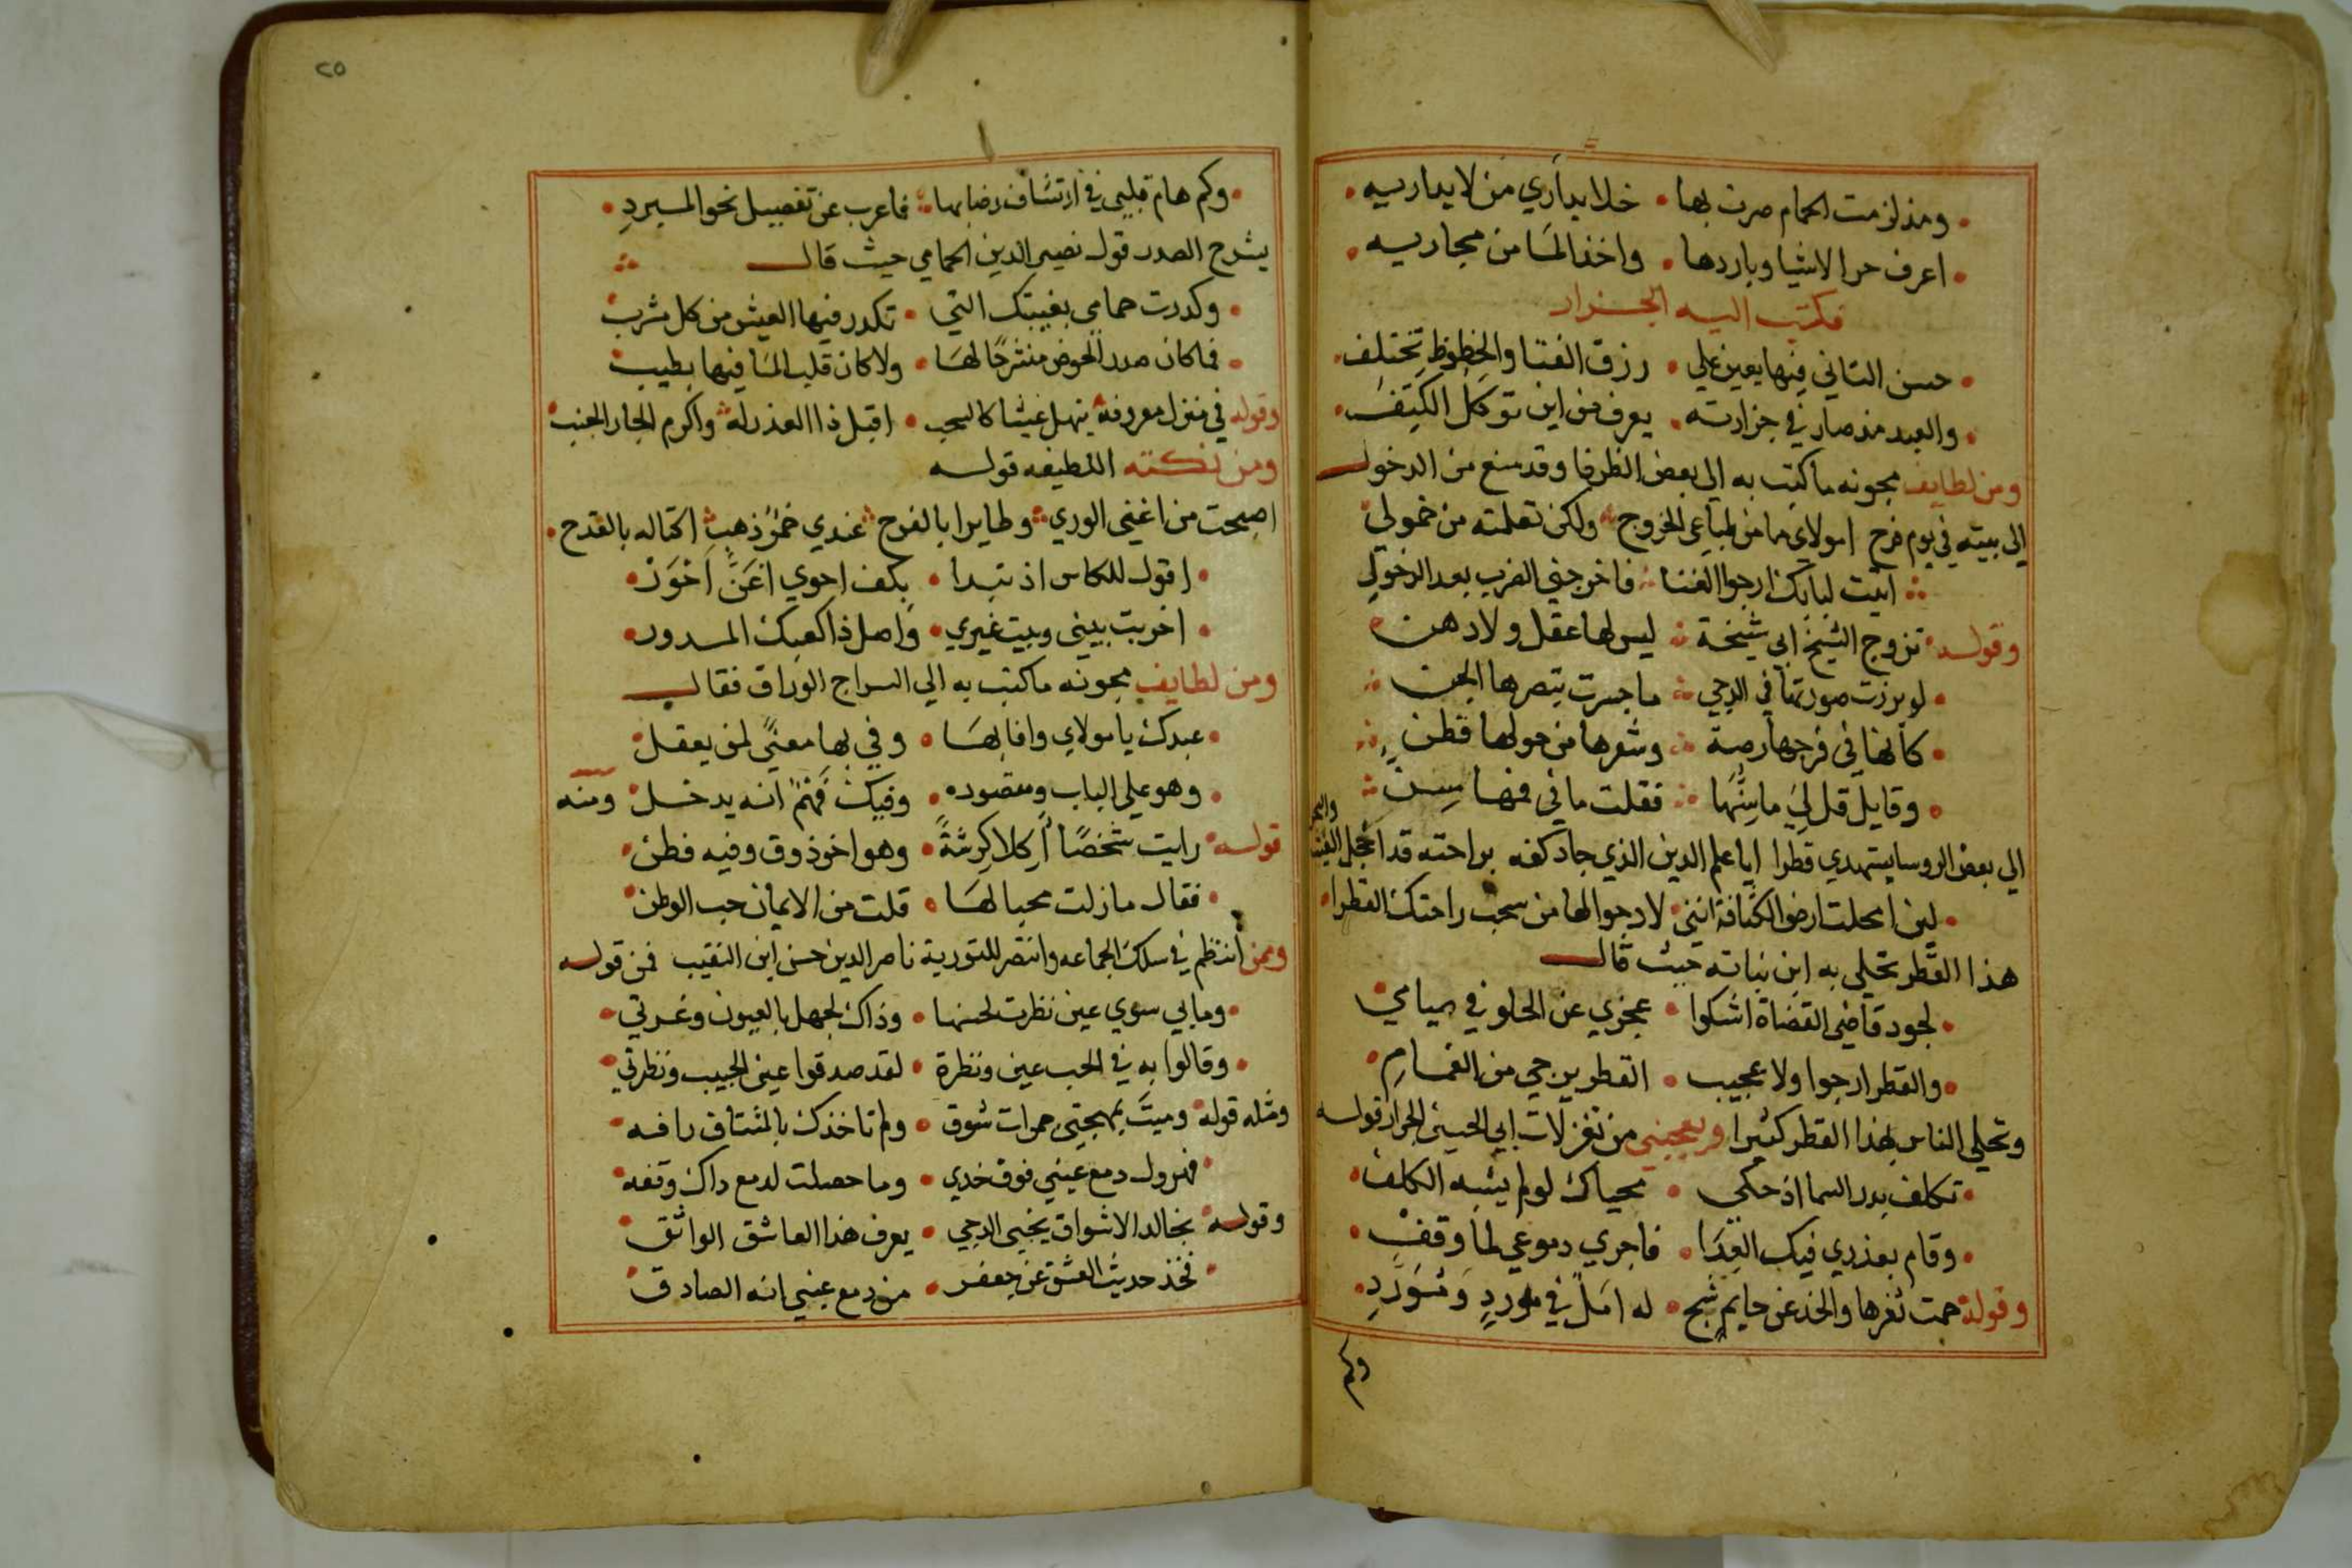 ومذلزمت الحمام صرت بها • خلا يداري من لا يداريه •
اعرف حر الاشيا وباردها • واخذ الما من مجاريه •
فكتب اليه الجزار
حسن التاني فيها يعين علي • رزق الفتا والحظوظ تختلف •
والعبد مذ صار في جزارته • يعرف من اين توكل الكتف •
ومن لطايف مجونه ما كتب به الي بعض الظرفا وقد منع من الدخول
الي بيته في يوم فرح امولاي ما من طباعي الخروج ولكن تعلمته من خمولي
اتيت لبابك ارجوا الغنا فاخرجني الضرب بعد الدخول
وقوله تزوج الشيخ ابي شيخة ليس لها عقل ولا دهن
لو برزت صورتها في الدجي ما جسرت تبصرها الجن
كانها في فرجها رمة وشعرها من حولها قطن
وقايل قل لي ما سنها فقلت ما في فمها سن
الي بعض الروسا يستهدي قطرا ايا علم الدين الذي جاد كفه براحته قد اخجل الغيث والبحر
لين امحلت ارض الكنافة انني لارجوا لها من سحب راحتك القطرا
هذا القطر تحلي به ابن نباته حيث قال
لجود قاضي القضاة اشكوا • عجزي عن الحلو في صيامي
والقطر ارجوا ولا عجيب • القطر يرجي من الغمام
وتحلي الناس بهذا القطر كثيرا ويعجبني من تغزلات ابي الحسين الجزار قوله
تكلف بدر السما اذ حكي • محياك لو لم يشبه الكلف
وقام بعذري فيك العذا • فاجري دموعي لما وقف
وقوله حمت ثغرها والخد عن حايم شج • له امل في مورد ومورد
وكم
٢٥
وكم هام قلبي في ارتشاف رضابها فاعرب عن تفصيل نحو المبرد
يشرح الصدر قول نصير الدين الحمامي حيث قال
وكدرت حمامي بغيبتك التي • تكدر فيها العيش من كل مشرب
فما كان صدر الحوض منشرحا لها • ولا كان قلب الما فيها بطيب
وقوله في منزل معروفه ينهل غيثا كالسحب • اقبل ذا العذر له واكرم الجار الجنب
ومن نكته اللطيفه قوله
اصبحت من اغني الوري وطايرا بالفرح عندي خمر ذهب اكتاله بالقدح
اقول للكاس اذ تبدا • بكف احوي اغن احور
اخربت بيتي وبيت غيري • واصل ذا كعبك المدور
ومن لطايف مجونه ما كتب به الي السراج الوراق فقال
عبدك يا مولاي وافا بها • وفي بها معني لمن يعقل
وهو علي الباب ومقصوده • وفيك فهم انه يدخل ومنه
قوله رايت شخصا اكلا كرشة • وهو اخو ذوق وفيه فطن
فقال ما زلت محبا لها • قلت من الايمان حب الوطن
وممن انتظم في سلك الجماعه وانتصر للتورية ناصر الدين حسن ابن النقيب فمن قوله
وما بي سوي عين نظرت لحسنها • وذاك لجهل بالعيون وغرتي
وقالوا به في الحب عين ونظرة • لقد صدقوا عين الحبيب ونظرتي
ومثله قوله وميت بمهجتي جمرات شوق • ولم تاخذك بالمشتاق رافه
فهرول دمع عيني فوق خدي • وما حصلت لدمع داك وقفه
وقوله بخالد الاشواق يحيي الدجي • يعرف هذا العاشق الواثق
فخذ حديث العشق عن جعفر • من دمع عيني انه الصادق